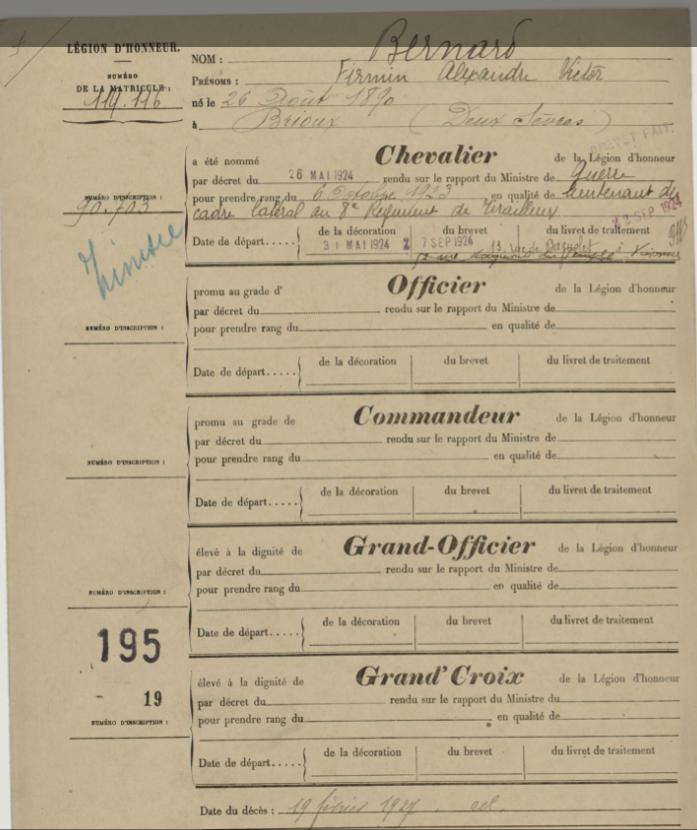 LÉGION D'HONNEUR.
NUMÉRO
DE LA MATRICULE :
119.116
NOM : Bernard
PRÉNOMS : Firmin Alexandre Victor
né le 26 Août 1890
à Brioux (Deux Sèvres)
DÉCRET FAIT.
a été nommé Chevalier de la Légion d'honneur
par décret du 26 MAI 1924 rendu sur le rapport du Ministre de Guerre
NUMÉRO D'INSCRIPTION :
90.703
pour prendre rang du 6 Octobre 1923 en qualité de lieutenant du
cadre latéral au 8e Régiment de Tirailleurs
22 SEP 1924
Date de départ..... de la décoration du brevet du livret de traitement
31 MAI 1924 27 SEP 1924 13, rue de
promu au grade d' Officier de la Légion d'honneur
par décret du rendu sur le rapport du Ministre de
NUMÉRO D'INSCRIPTION :
pour prendre rang du en qualité de
Date de départ..... de la décoration du brevet du livret de traitement
promu au grade de Commandeur de la Légion d'honneur
par décret du rendu sur le rapport du Ministre de
NUMÉRO D'INSCRIPTION :
pour prendre rang du en qualité de
Date de départ..... de la décoration du brevet du livret de traitement
élevé à la dignité de Grand-Officier de la Légion d'honneur
par décret du rendu sur le rapport du Ministre de
NUMÉRO D'INSCRIPTION :
pour prendre rang du en qualité de
Date de départ..... de la décoration du brevet du livret de traitement
195
élevé à la dignité de Grand'Croix de la Légion d'honneur
- 19
par décret du rendu sur le rapport du Ministre du
NUMÉRO D'INSCRIPTION :
pour prendre rang du en qualité de
Date de départ..... de la décoration du brevet du livret de traitement
Date du décès : 19 février 1927